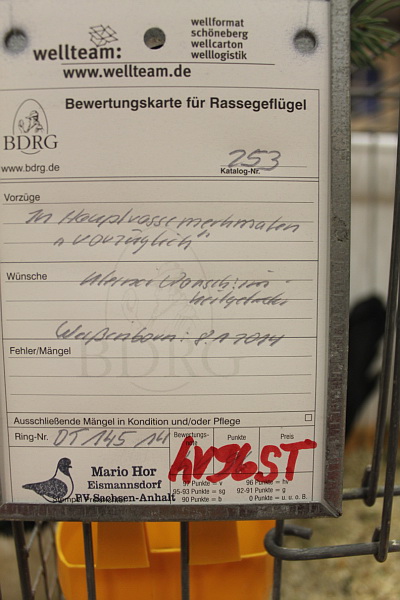 wellteam:
wellformat
schöneberg
wellcarton
welllogistik
www.wellteam.de
Bewertungskarte für Rassegeflügel
BDRG
www.bdrg.de
253
Katalog-Nr.
Vorzüge
In Hauptrassemerkmalen
"vorzüglich"
Wünsche
Fehler/Mängel
BDRG
Ausschließende Mängel in Kondition und/oder Pflege
Ring-Nr. DT 145 14
Bewertungs-
Punkte
Preis
hv 96 ST
Mario Hor
Eismannsdorf
PV Sachsen-Anhalt
97 Punkte = v
96 Punkte = hv
95-93 Punkte = sg
92-91 Punkte = g
90 Punkte = b
0 Punkte = u. o. B.